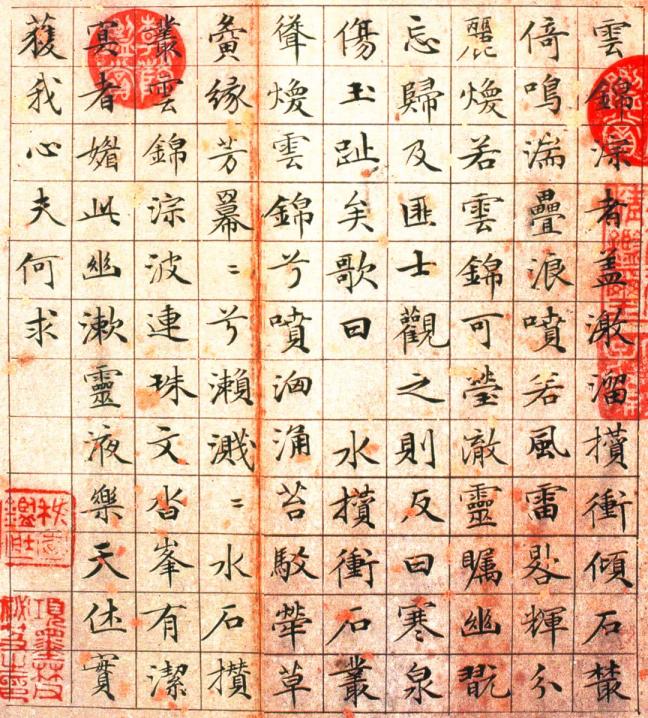 雲錦淙者盖激溜攅衝傾石藂
倚鳴湍疊浪噴若風雷輝分
麗煥若雲錦可瑩澈靈矚幽翫
忘歸及匪士觀之則反曰寒泉
傷玉趾矣歌曰 水攅衝石叢
聳煥雲錦兮噴洶涌苔駁犖草
夤緣芳羃〻兮瀨濺〻水石攅
叢雲錦淙波連珠文沓峯有潔
冥者媚此幽漱靈液樂天休實
獲我心夫何求